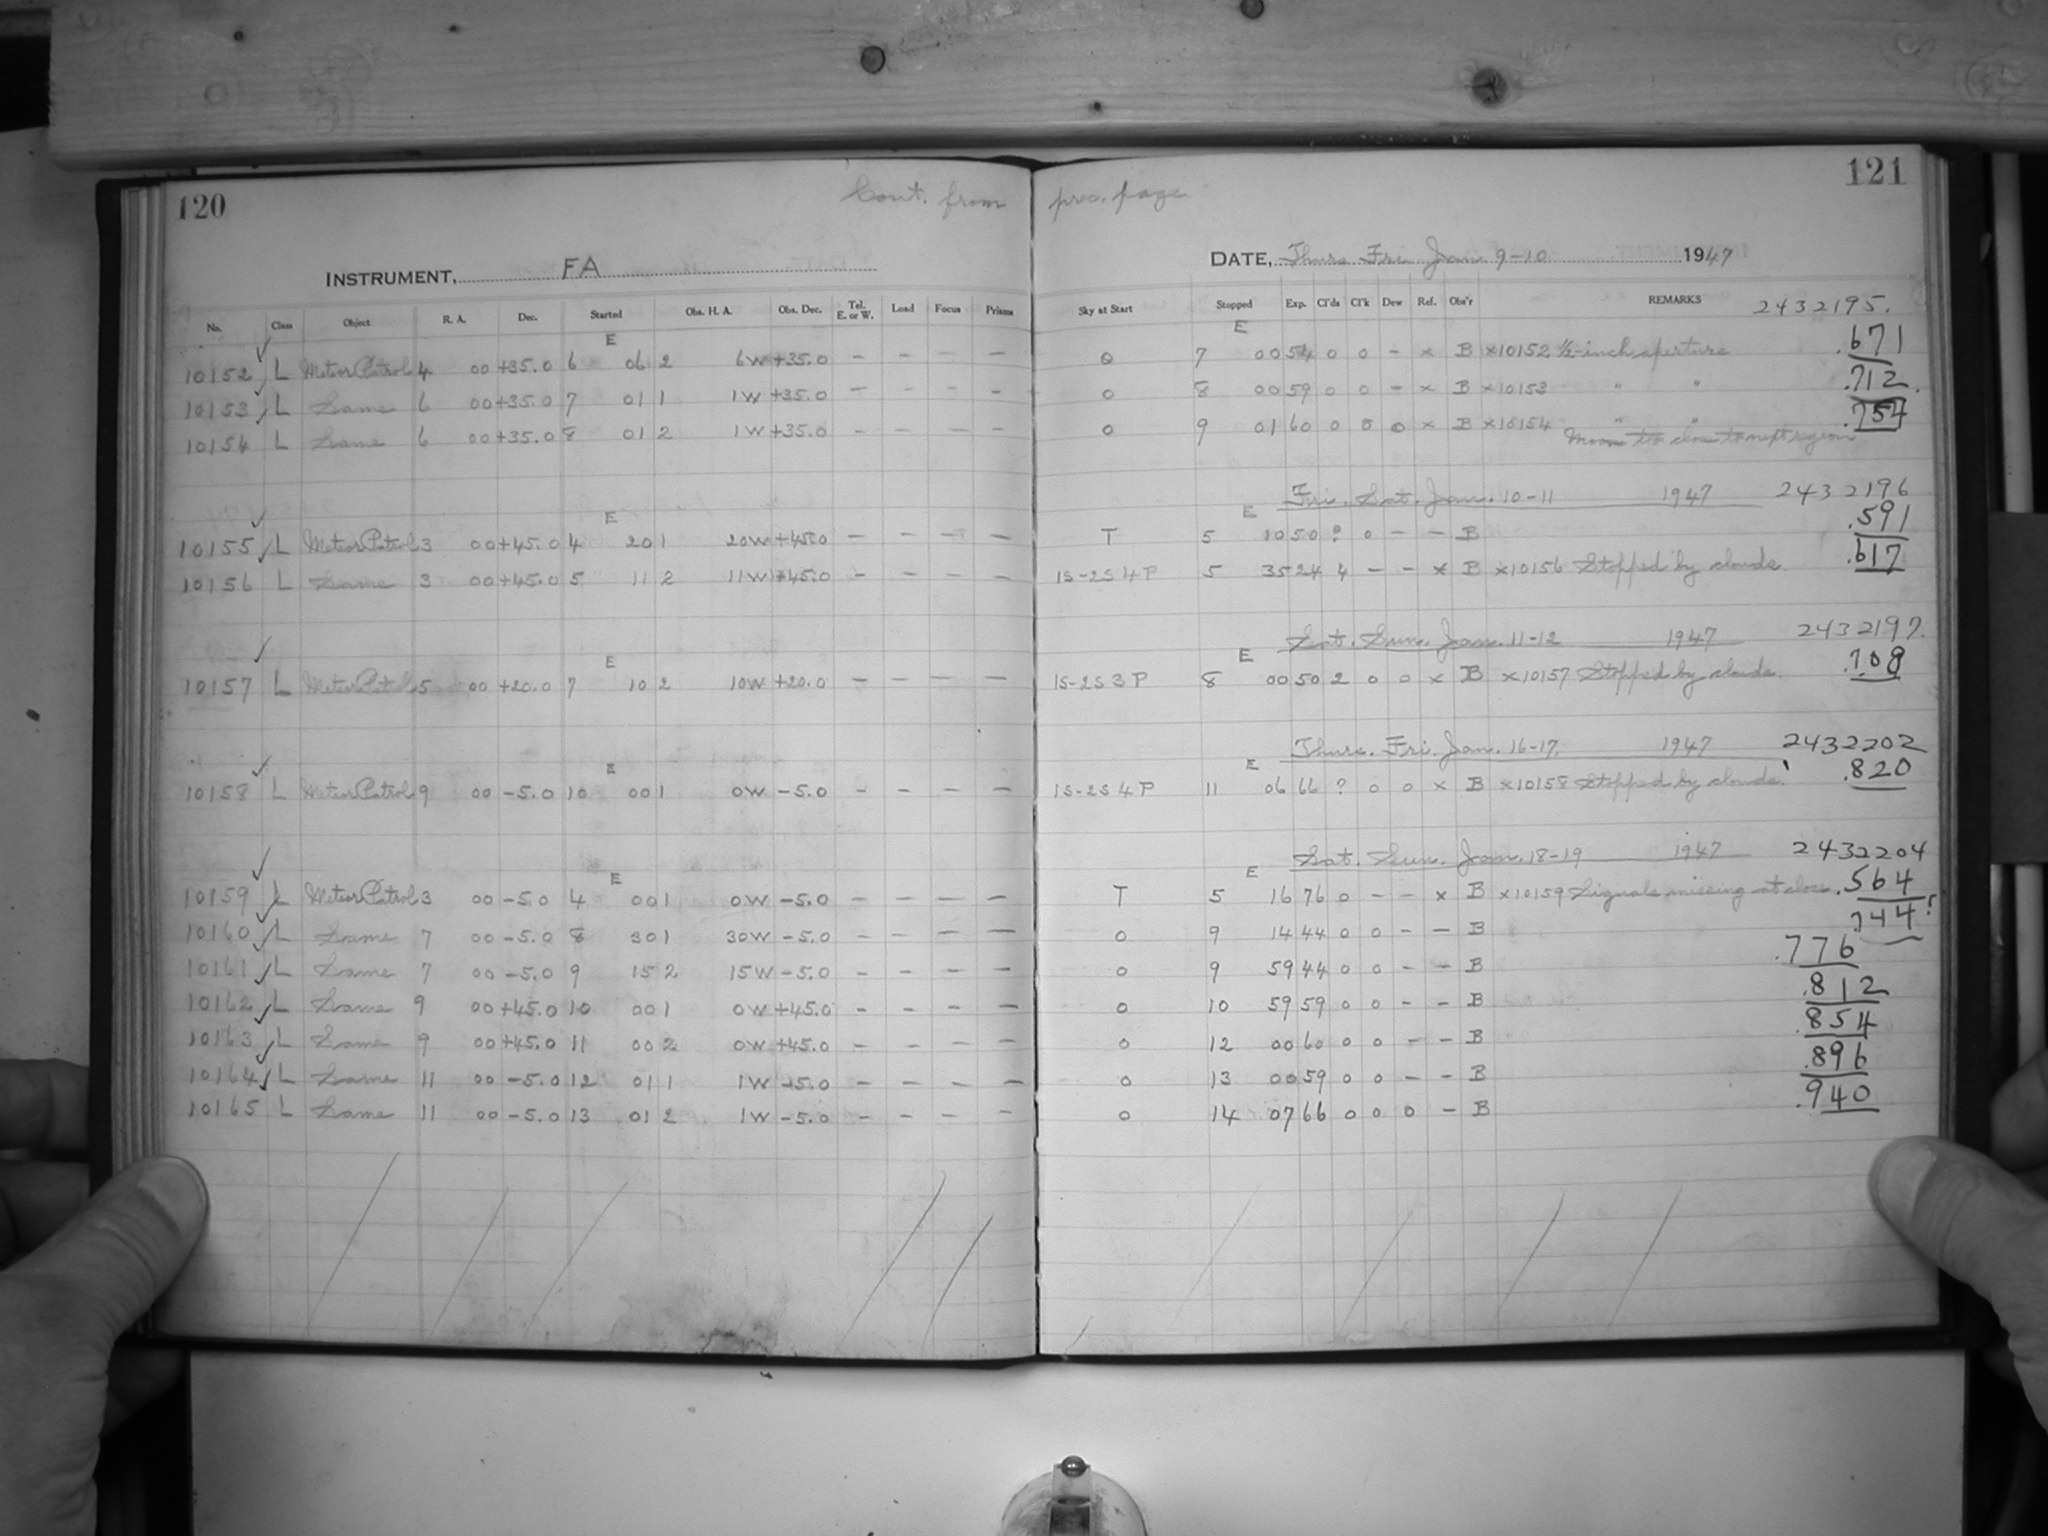 120
Cont. from prec. page
121
INSTRUMENT, FA
DATE, Thurs. Fri. Jan. 9-10 1947
No. Class Object R. A. Dec. Started Obs. H. A. Obs. Dec. Tel. E. or W. Load Focus Prisms Sky at Start Stopped Exp. Cl'ds Cl'k Dew Ref. Obs'r REMARKS
2432195.
E E
10152 ✓ L Meteor Patrol 4 00 +35.0 6 06 2 6W +35.0 – – – – 0 7 00 54 0 0 – x B x10152 ½-inch aperture .671
10153 ✓ L Same 6 00 +35.0 7 01 1 1W +35.0 – – – 0 8 00 59 0 0 – x B x10153 " " .712.
10154 L Same 6 00 +35.0 8 01 2 1W +35.0 – – – – 0 9 01 60 0 0 0 x B x10154 " " .754
Moon too close to next region
Fri. Sat. Jan. 10-11 1947 2432196
E E
10155 ✓ L Meteor Patrol 3 00 +45.0 4 20 1 20W +45.0 – – – – T 5 10 50 ? 0 – – B .591
10156 L Same 3 00 +45.0 5 11 2 11W +45.0 – – – – 1S-2S 4P 5 35 24 4 – – x B x10156 Stopped by clouds .617
Sat. Sun. Jan. 11-12 1947 2432197.
E E
10157 L Meteor Patrol 5 00 +20.0 7 10 2 10W +20.0 – – – – 1S-2S 3P 8 00 50 2 0 0 x B x10157 Stopped by clouds. .708
Thurs. Fri. Jan. 16-17. 1947 2432202
E E
10158 L Meteor Patrol 9 00 -5.0 10 00 1 0W -5.0 – – – – 1S-2S 4P 11 06 66 ? 0 0 x B x10158 Stopped by clouds. .820
Sat. Sun. Jan. 18-19 1947 2432204
E E
10159 ✓ L Meteor Patrol 3 00 -5.0 4 00 1 0W -5.0 – – – – T 5 16 76 0 – – x B x10159 Signals missing at close .564
10160 ✓ L Same 7 00 -5.0 8 30 1 30W -5.0 – – – – 0 9 14 44 0 0 – – B .744?
10161 ✓ L Same 7 00 -5.0 9 15 2 15W -5.0 – – – – 0 9 59 44 0 0 – – B .776
10162 ✓ L Same 9 00 +45.0 10 00 1 0W +45.0 – – – – 0 10 59 59 0 0 – – B .812
10163 ✓ L Same 9 00 +45.0 11 00 2 0W +45.0 – – – – 0 12 00 60 0 0 – – B .854
10164 ✓ L Same 11 00 -5.0 12 01 1 1W -5.0 – – – – 0 13 00 59 0 0 – – B .896
10165 L Same 11 00 -5.0 13 01 2 1W -5.0 – – – – 0 14 07 66 0 0 0 – B .940